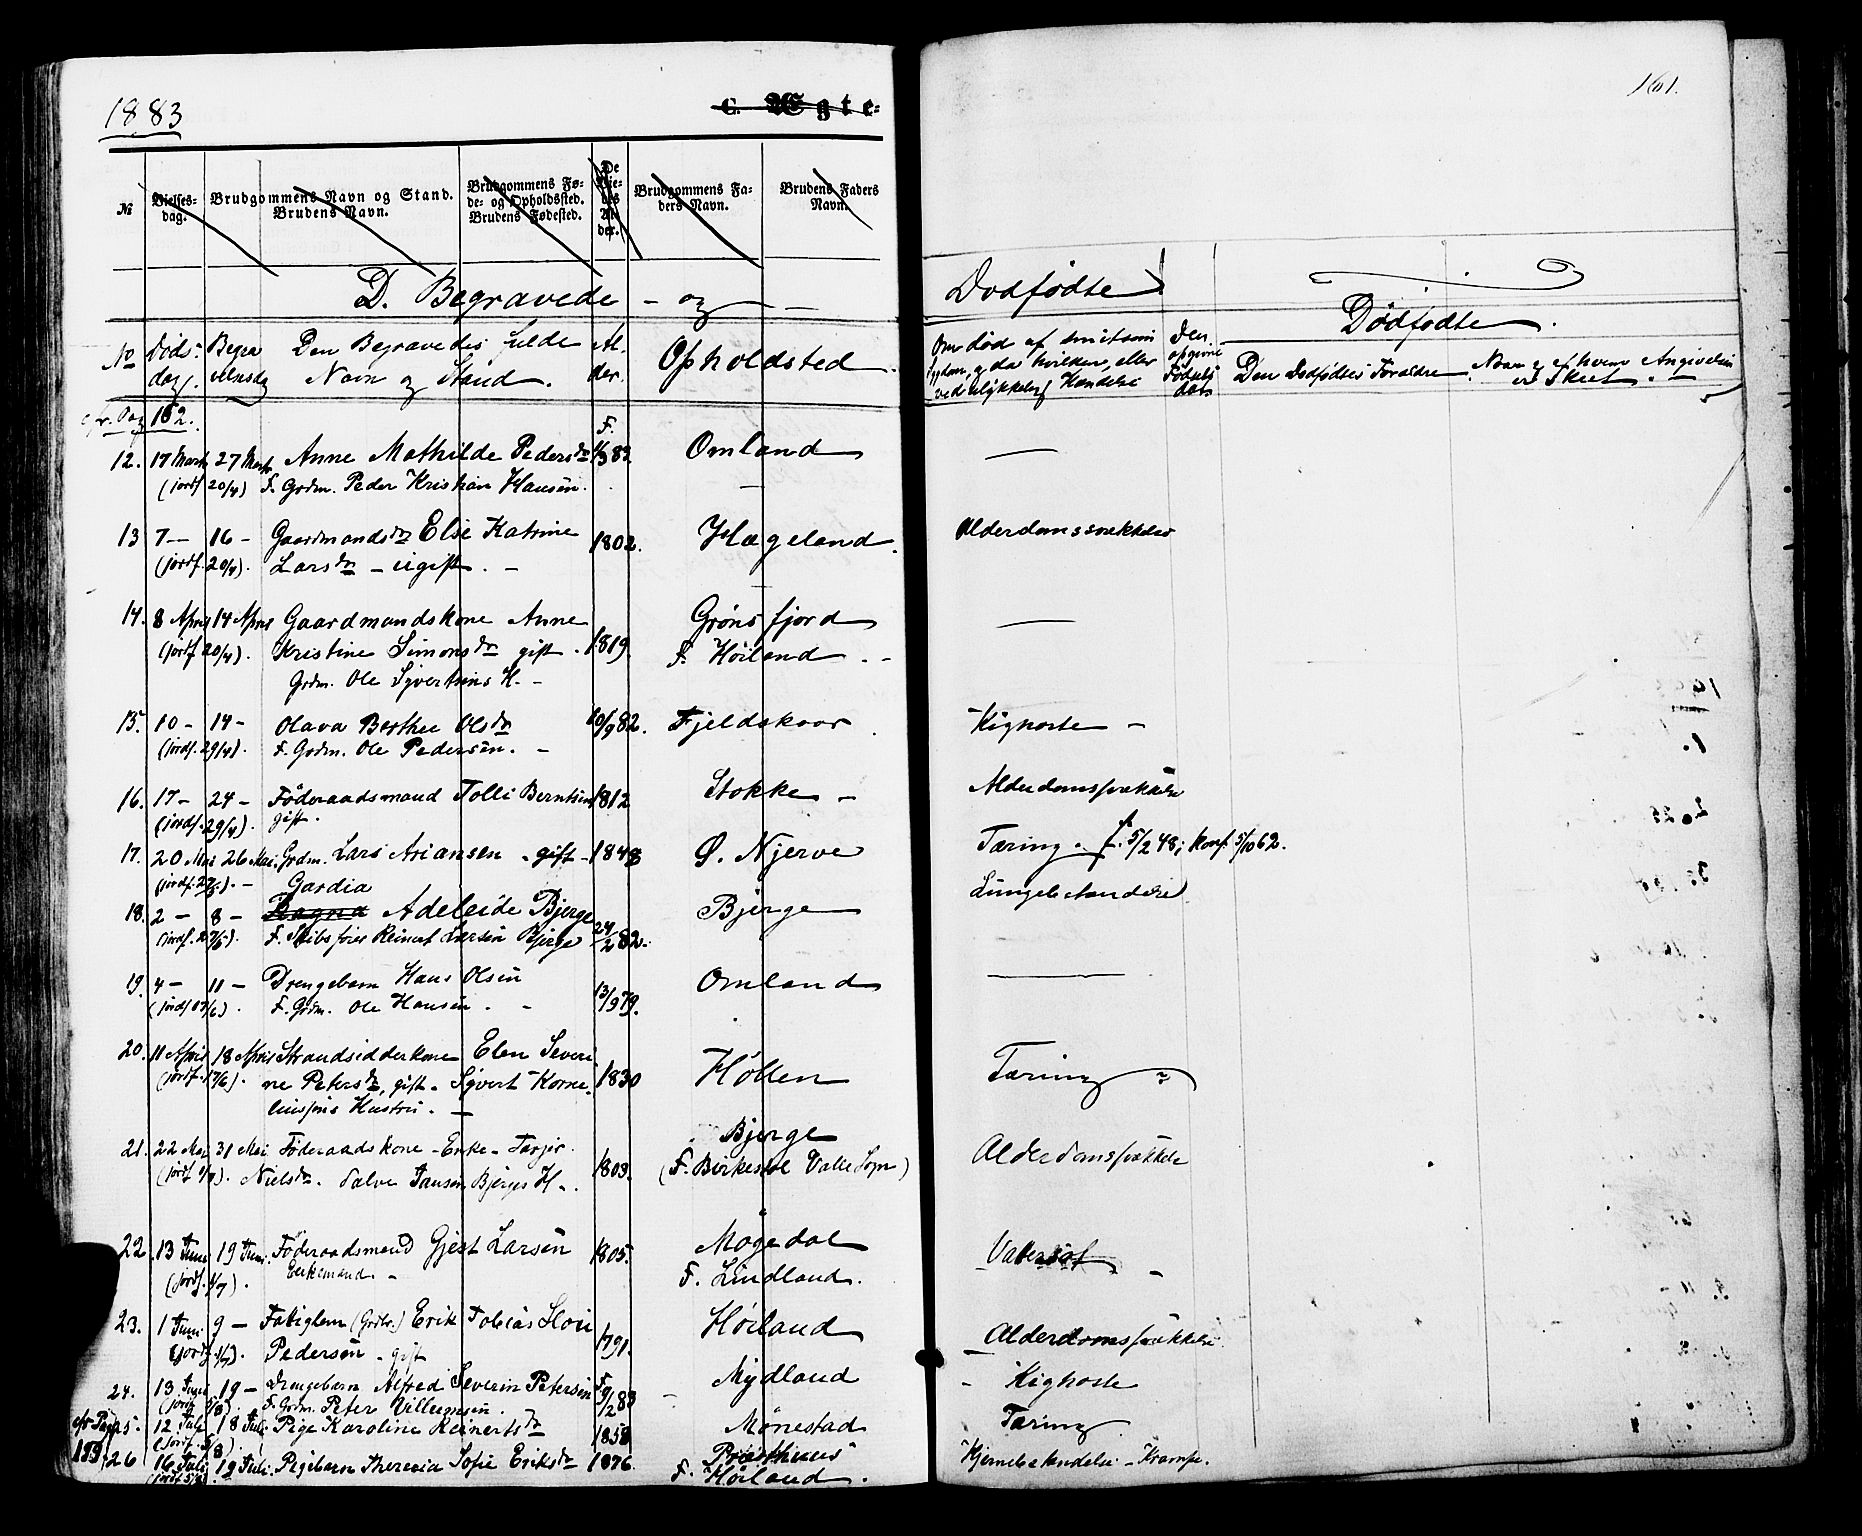 1883
C. Ægte-
161.
№
Vielses-
dag.
Brudgommens Navn og Stand.
Brudens Navn.
Brudgommens Fø-
de- og Opholdssted.
Brudens Fødested.
De
Vie-
des
Al-
der.
Brudgommens Fa-
ders Navn.
Brudens Faders
Navn.
D. Begravede - og - Dødfødte
No Døds- Begra Den Begravedes fulde Al- Opholdsted.
dag. velsesdag Navn og Stand. der.
Om død af smitsom Den Dødfødte.
Sygdom, og da hvilken, eller opgivne Den Dødfødtes Forældre Naar og af hvem Angivelsen
ved ulykkelig Hændelse Fødsels er Skeet.
cfr. Pag 162.
12. 17 Marts 27 Marts Anne Mathilde Pedersdr F. 83. Omland
(jordf. 20/4) F. Grdm. Peder Kristian Hansen.
13 7 - 16 - Gaardmandsdr Else Katrine 1802. Hægeland. Alderdomssvækkelse
(jordf. 20/4). Larsdr - ugift. -
14. 8 April 14 April Gaardmandskone Anne Grønsfjord
(jordf 20/4). Kristine Simonsdr gift. 1819. F. Høiland. -
Grdm. Ole Syvertsens H. -
15. 10 - 14 - Olava Berthee Olsdr 10/9 82. Fjeldskaar. Kighoste -
(jordf. 29/4). F. Grdm. Ole Pedersen. -
16. 17 - 24 - Føderaadsmand Tolli Berntsen 1812 Stokke - Alderdomssvækkelse
(jordf. 29/4). gift.
17. 20 Mai 26 Mai. Grdm. Lars Ariansen - gift - 1848 Ø. Njerve Tæring. f. 5/2 48; konf. 5/10 62.
(jordf. 27/5). - Gardia
18. 2 - 8 - Ragna Adeleide Bjerge 24/2 82. Bjerge Lungebetændelse
(jordf. 27/5). F. Skibsfører Reinert Larsen Bjerge
19. 4 - 11 - Drengebarn Hans Olsen 13/9 79. Omland
(jordf 17/6). F. Grdm. Ole Hansen. -
20. 11 April 18 April Strandsidderkone Elen Severi
(jordf. 17/6). ne Petersdr, gift. Syvert Korne- 1830 Høllen Tæring
liussens Hustru. -
21. 22 Mai 31 Mai Føderaadskone - Enke - Torjer Bjerge Alderdomssvækkelse
(jordf 1/7). Nielsdr. Salve Jansen Bjerges H. 1803. (F. Birkestøl Valle Sogn)
22. 13 Juni 19 Juni. Føderaadsmand Gjest Larsen 1805. Mogedal
(jordf. 1/7). Enkemand. - F. Lindland.
23. 1 Juni 9 - Fatiglem (Grdbr.) Erik Tobias Høiland
(jordf. 1/7). Pedersen - gift 1791. Alderdomssvækkelse.
24. 13 19 - Drengebarn Alfred Severin Petersen F. 9/2 83 Mydland Kighoste
F. Grdm. Peter Villumsen.
cfr Pag 12 Juli 18 Juli. Pige Karoline Reinertsdr 1858 Mønestad Tæring
(jordf. 5/8).
26 16 Juli 19 Juli. Pigebarn Theresia Sofie Eriksdr 1876. Præsthuus Hjernebetændelse - Krampe.
(jordf. 5/8). F. Høiland.